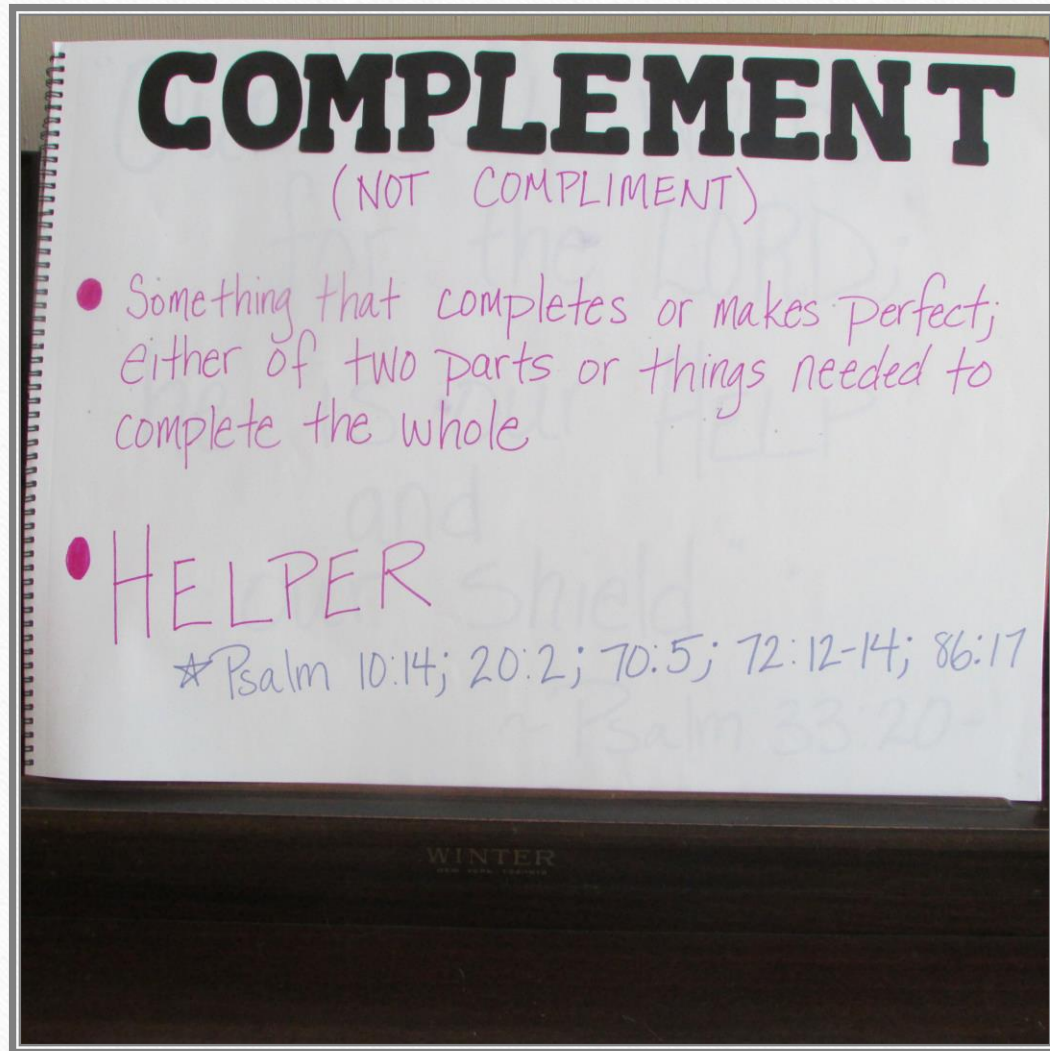 COMPLEMENT
(NOT COMPLIMENT)
Something that completes or makes perfect;
either of two parts or things needed to
complete the whole
HELPER
☆Psalm 10:14; 20:2; 70:5; 72:12-14; 86:17
for the LORD;
HELP
and
our shield"
~ Psalm 33:20~
WINTER